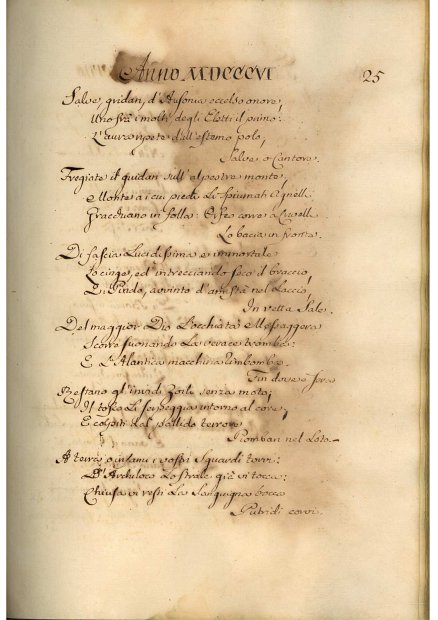 Anno MDCCCVI
25
Salve, gridan, d'Ausonia eccelso onore,
Uno frà i molti degli Eletti il primo:
L'aura ripete dall'estremo polo,
Salve o Cantore.
Fregiate il guidan sull'alpestre monte,
Monte a i cui piedi Li spiumati Agnelli
Gracchiano in folla: Orfeo corre a
Lo bacia in fronte.
Di fascia Lucidissima e immortale
Lo cinge, ed intrecciando seco il braccio,
E Pindo, avvinto d'amistà nel Laccio,
In vetta Sale.
Del maggior Dio L'occhiuta Messaggera
Scorre suonando La verace tromba
E L'Atlantica macchina rimbomba
Fin dove
Restano gl'invidi Zoili senza moto,
Il tosco Li serpeggia intorno al core,
E colpiti dal pallido terrore
Piomban nel Loto
A terra o infami i vostri Sguardi torvi:
D'Archiloco Lo strale già vi tocca:
Chiusa vi resti La Sanguigna bocca
Putridi corvi.